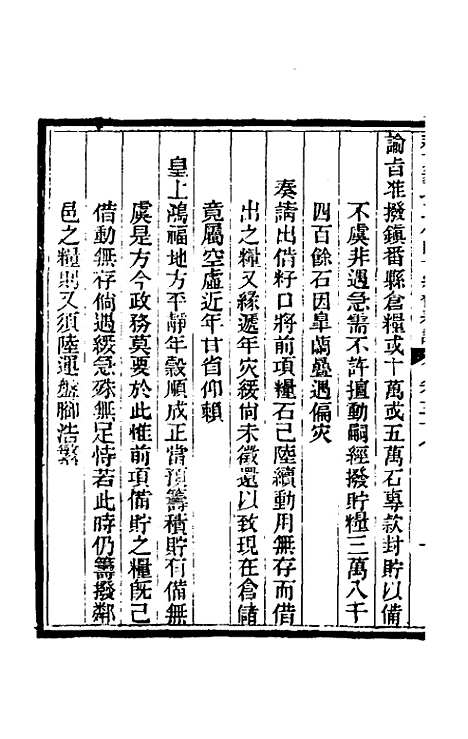 諭旨准撥鎮番縣倉糧或十萬或五萬石專款封貯以備
不虞非遇急需不許擅動嗣經撥貯糧三萬八千
四百餘石因臯蘭疊遇偏灾
奏請出借籽口將前項糧石已陸續動用無存而借
出之糧又緣遞年灾緩尙未徵還以致現在倉儲
竟屬空虛近年甘省仰賴
皇上鴻福地方平靜年穀順成正當預籌積貯有備無
虞是方今政務莫要於此惟前項備貯之糧旣已
借動無存倘遇緩急殊無足恃若此時仍籌撥鄰
邑之糧則又須陸運盤腳浩繁